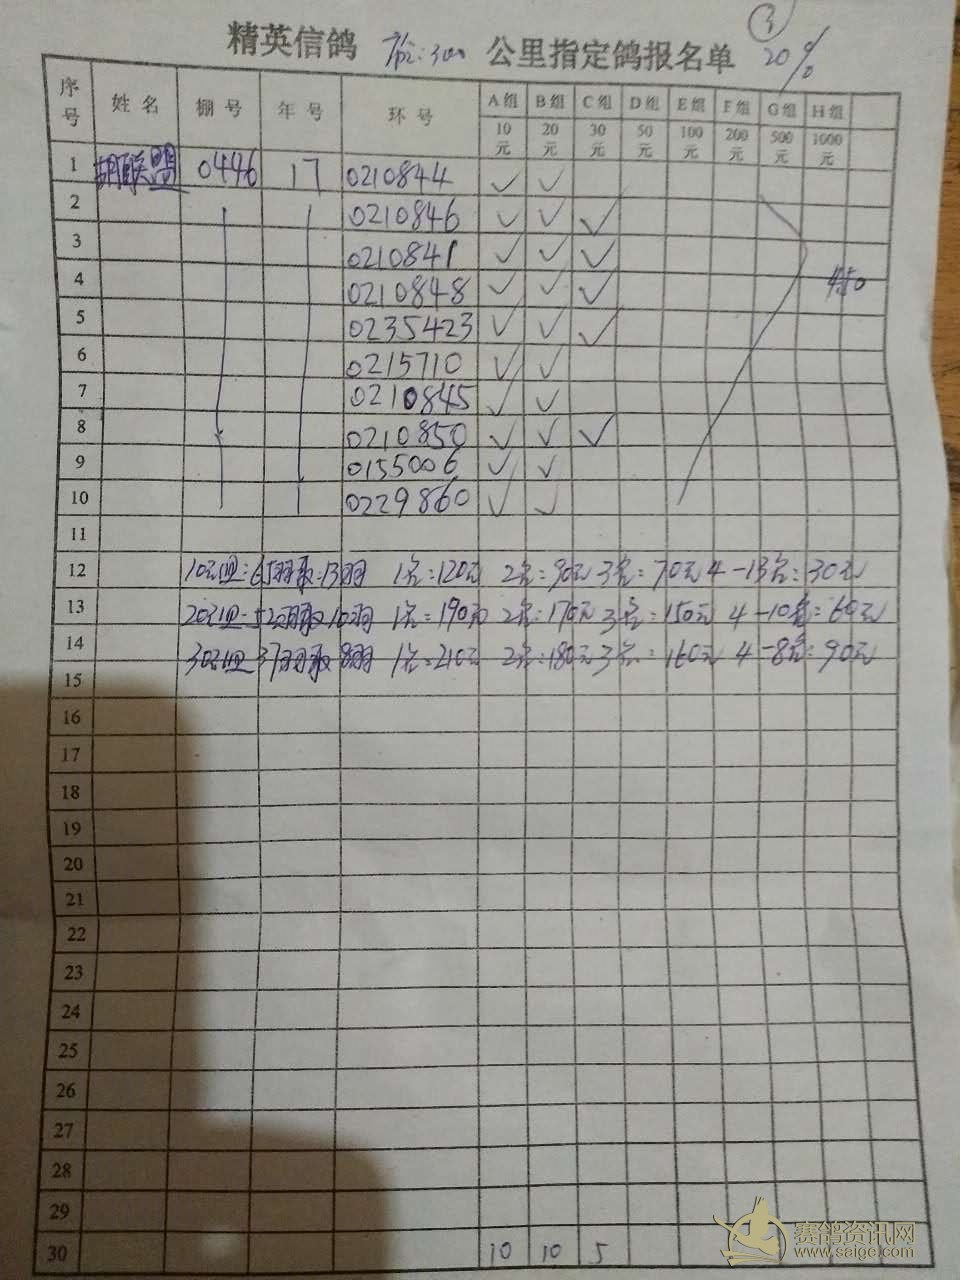 ③
精英信鸽 300 公里指定鸽报名单 20%
序号 姓名 棚号 年号 环号 A组 B组 C组 D组 E组 F组 G组 H组
10元 20元 30元 50元 100元 200元 500元 1000元
1 胡联盟 0446 17 0210844 ✓ ✓
2 0210846 ✓ ✓ ✓
3 0210841 ✓ ✓ ✓
4 0210848 ✓ ✓ ✓
5 0235423 ✓ ✓ ✓
6 0215710 ✓ ✓
7 0210845 ✓ ✓
8 0210850 ✓ ✓ ✓
9 0155006 ✓ ✓
10 0229860 ✓ ✓
11
12 10元组:65羽取:13羽 1名:120元 2名:90元 3名:70元 4-13名:30元
13 20元组:52羽取10羽 1名:190元 2名:170元 3名:150元 4-10名:60元
14 30元组37羽取8羽 1名:210元 2名:180元 3名:160元 4-8名:90元
15
16
17
18
19
20
21
22
23
24
25
26
27
28
29
30 10 10 5
赛鸽资讯网
www.saige.com